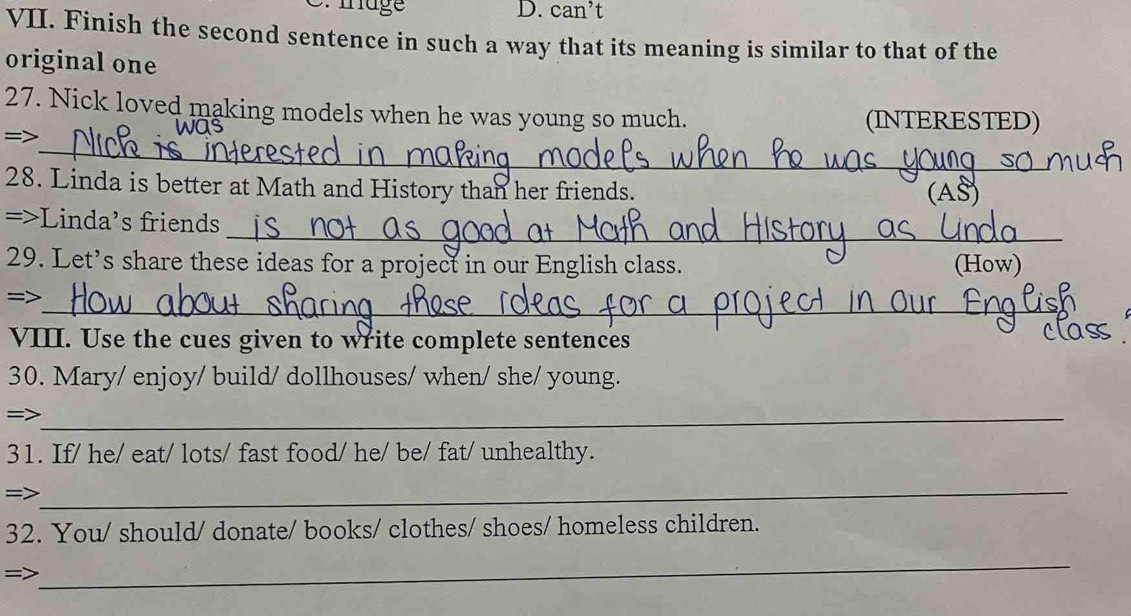 D. can't
VII. Finish the second sentence in such a way that its meaning is similar to that of the
original one
27. Nick loved making models when he was young so much. (INTERESTED)
was
=> Nick is interested in making models when he was young so much
28. Linda is better at Math and History than her friends. (AS)
=>Linda's friends is not as good at Math and History as Linda
29. Let's share these ideas for a project in our English class. (How)
=> How about sharing these ideas for a project in our English
class ?
VIII. Use the cues given to write complete sentences
30. Mary/ enjoy/ build/ dollhouses/ when/ she/ young.
=>
31. If/ he/ eat/ lots/ fast food/ he/ be/ fat/ unhealthy.
=>
32. You/ should/ donate/ books/ clothes/ shoes/ homeless children.
=>